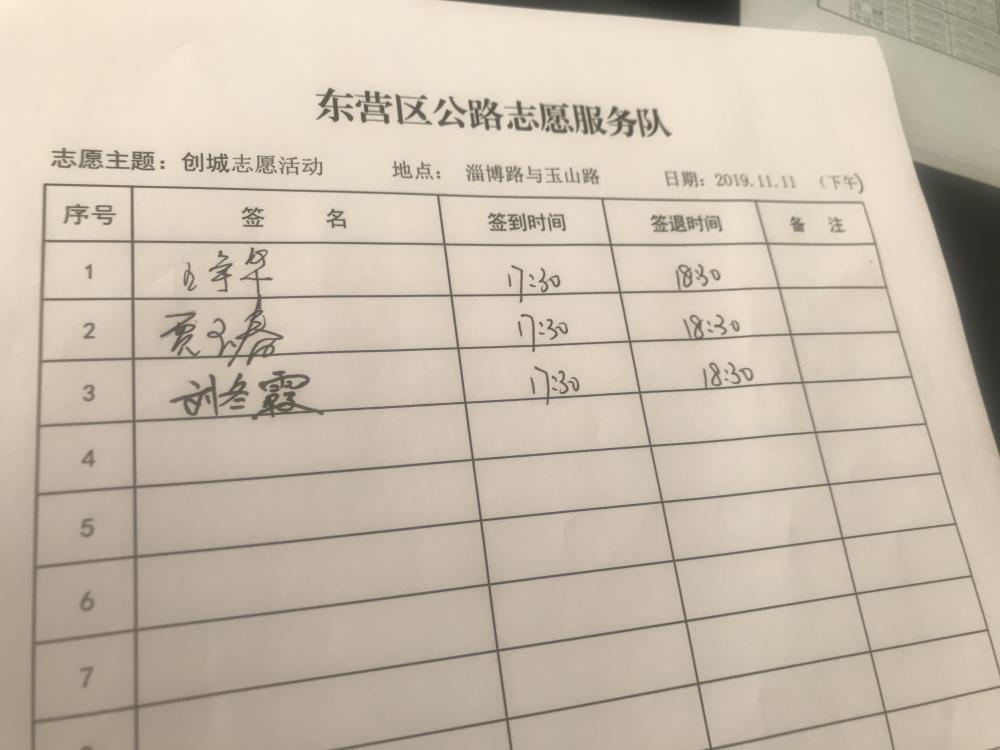 东营区公路志愿服务队
志愿主题：创城志愿活动 地点： 淄博路与玉山路 日期：2019.11.11 （下午）
序号 签 名 签到时间 签退时间 备 注
1 17:30 18:30
2 贾 17:30 18:30
3 刘冬霞 17:30 18:30
4
5
6
7